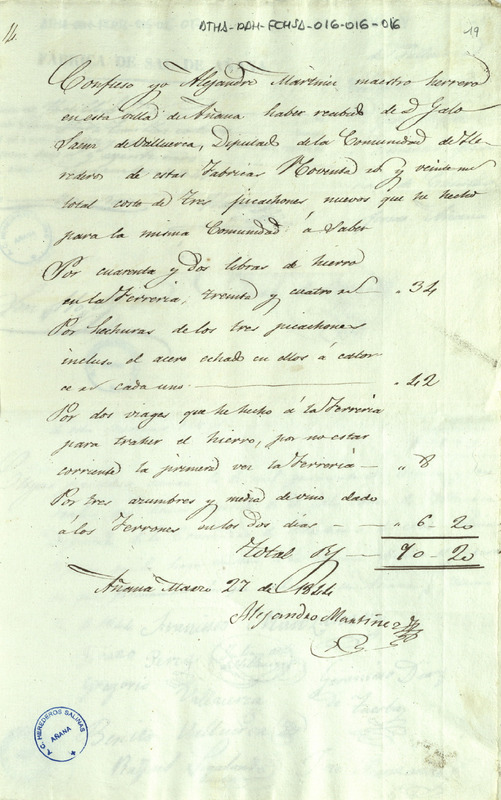 14.
ATHA-DAH-FCHSA-016-016-016
19
Confieso yo Alejandro Martinez maestro herrero
en esta villa de Añana haber recibido de d. Galo
Saenz de Valluerca, Diputado de la Comunidad de He-
rederos de estas Fabricas Noventa rs y veinte ms
total costo de tres picachones nuevos que he hecho
para la misma Comunidad á saber
Por cuarenta y dos libras de hierro
en la Ferreria, treinta y cuatro rs „ 34
Por hechuras de los tres picachones
incluso el acero echado en ellos á cator-
ce rs cada uno „ 42
Por dos viages que he hecho á la Ferreria
para traher el hierro, por no estar
corriente la primera vez la Ferreria — „ 8
Por tres azumbres y media de vino dado
á los Ferrones en los dos dias — — „ 6 - 20
Total Rs — 90 20
Añana Marzo 27 de 1844
Alejandro Martinez
A.C. HEREDEROS SALINAS
AÑANA